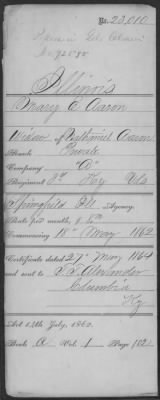 No. 23,010
Illinois
Mary C. Aaron
Widow of Nathaniel Aaron
Rank Private
Company "A"
Regiment 3d Ky Vols
Springfield Ill. Agency.
Rate per month, $ 8
Commencing 18" May 1862
Certificate dated 27" May 1864
and sent to
Columbia
Ky
Act 14th July, 1862.
Book A Vol. 1 Page 102